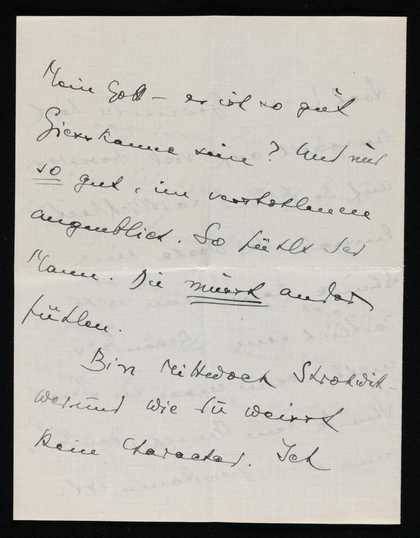 Mein Gott – er ist so gut
Giesskanne sein? Und nur
so gut, im verstohlenen
augenblick. So fühlt der
Mann. Du musst anders
fühlen.
Bin Mittwoch Strohwit-
wer und wie du weisst
kein Character. Ich